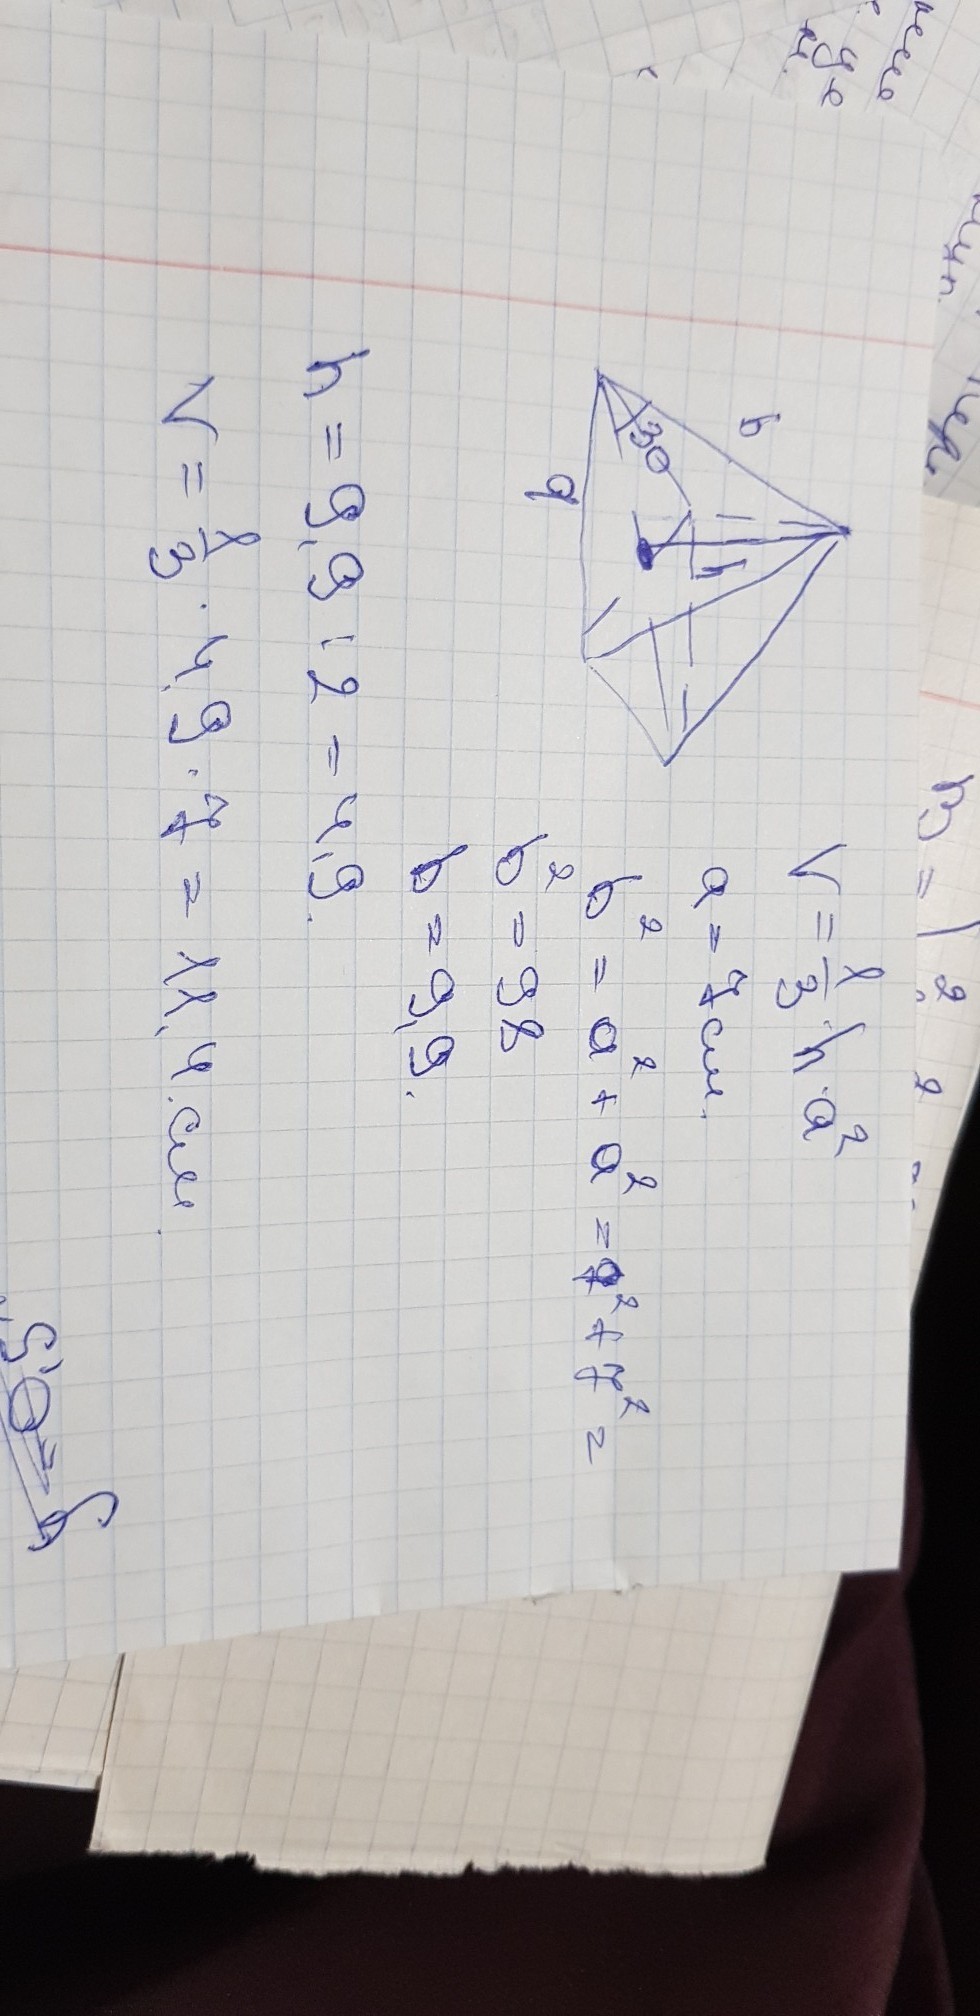 b
30
h
a
V = 1/3 · h · a²
a = 7 см.
b² = a² + a² = 7² + 7² =
b² = 98
b = 9,9.
h = 9,9 : 2 = 4,9.
V = 1/3 · 4,9 · 7 = 11,4 см.